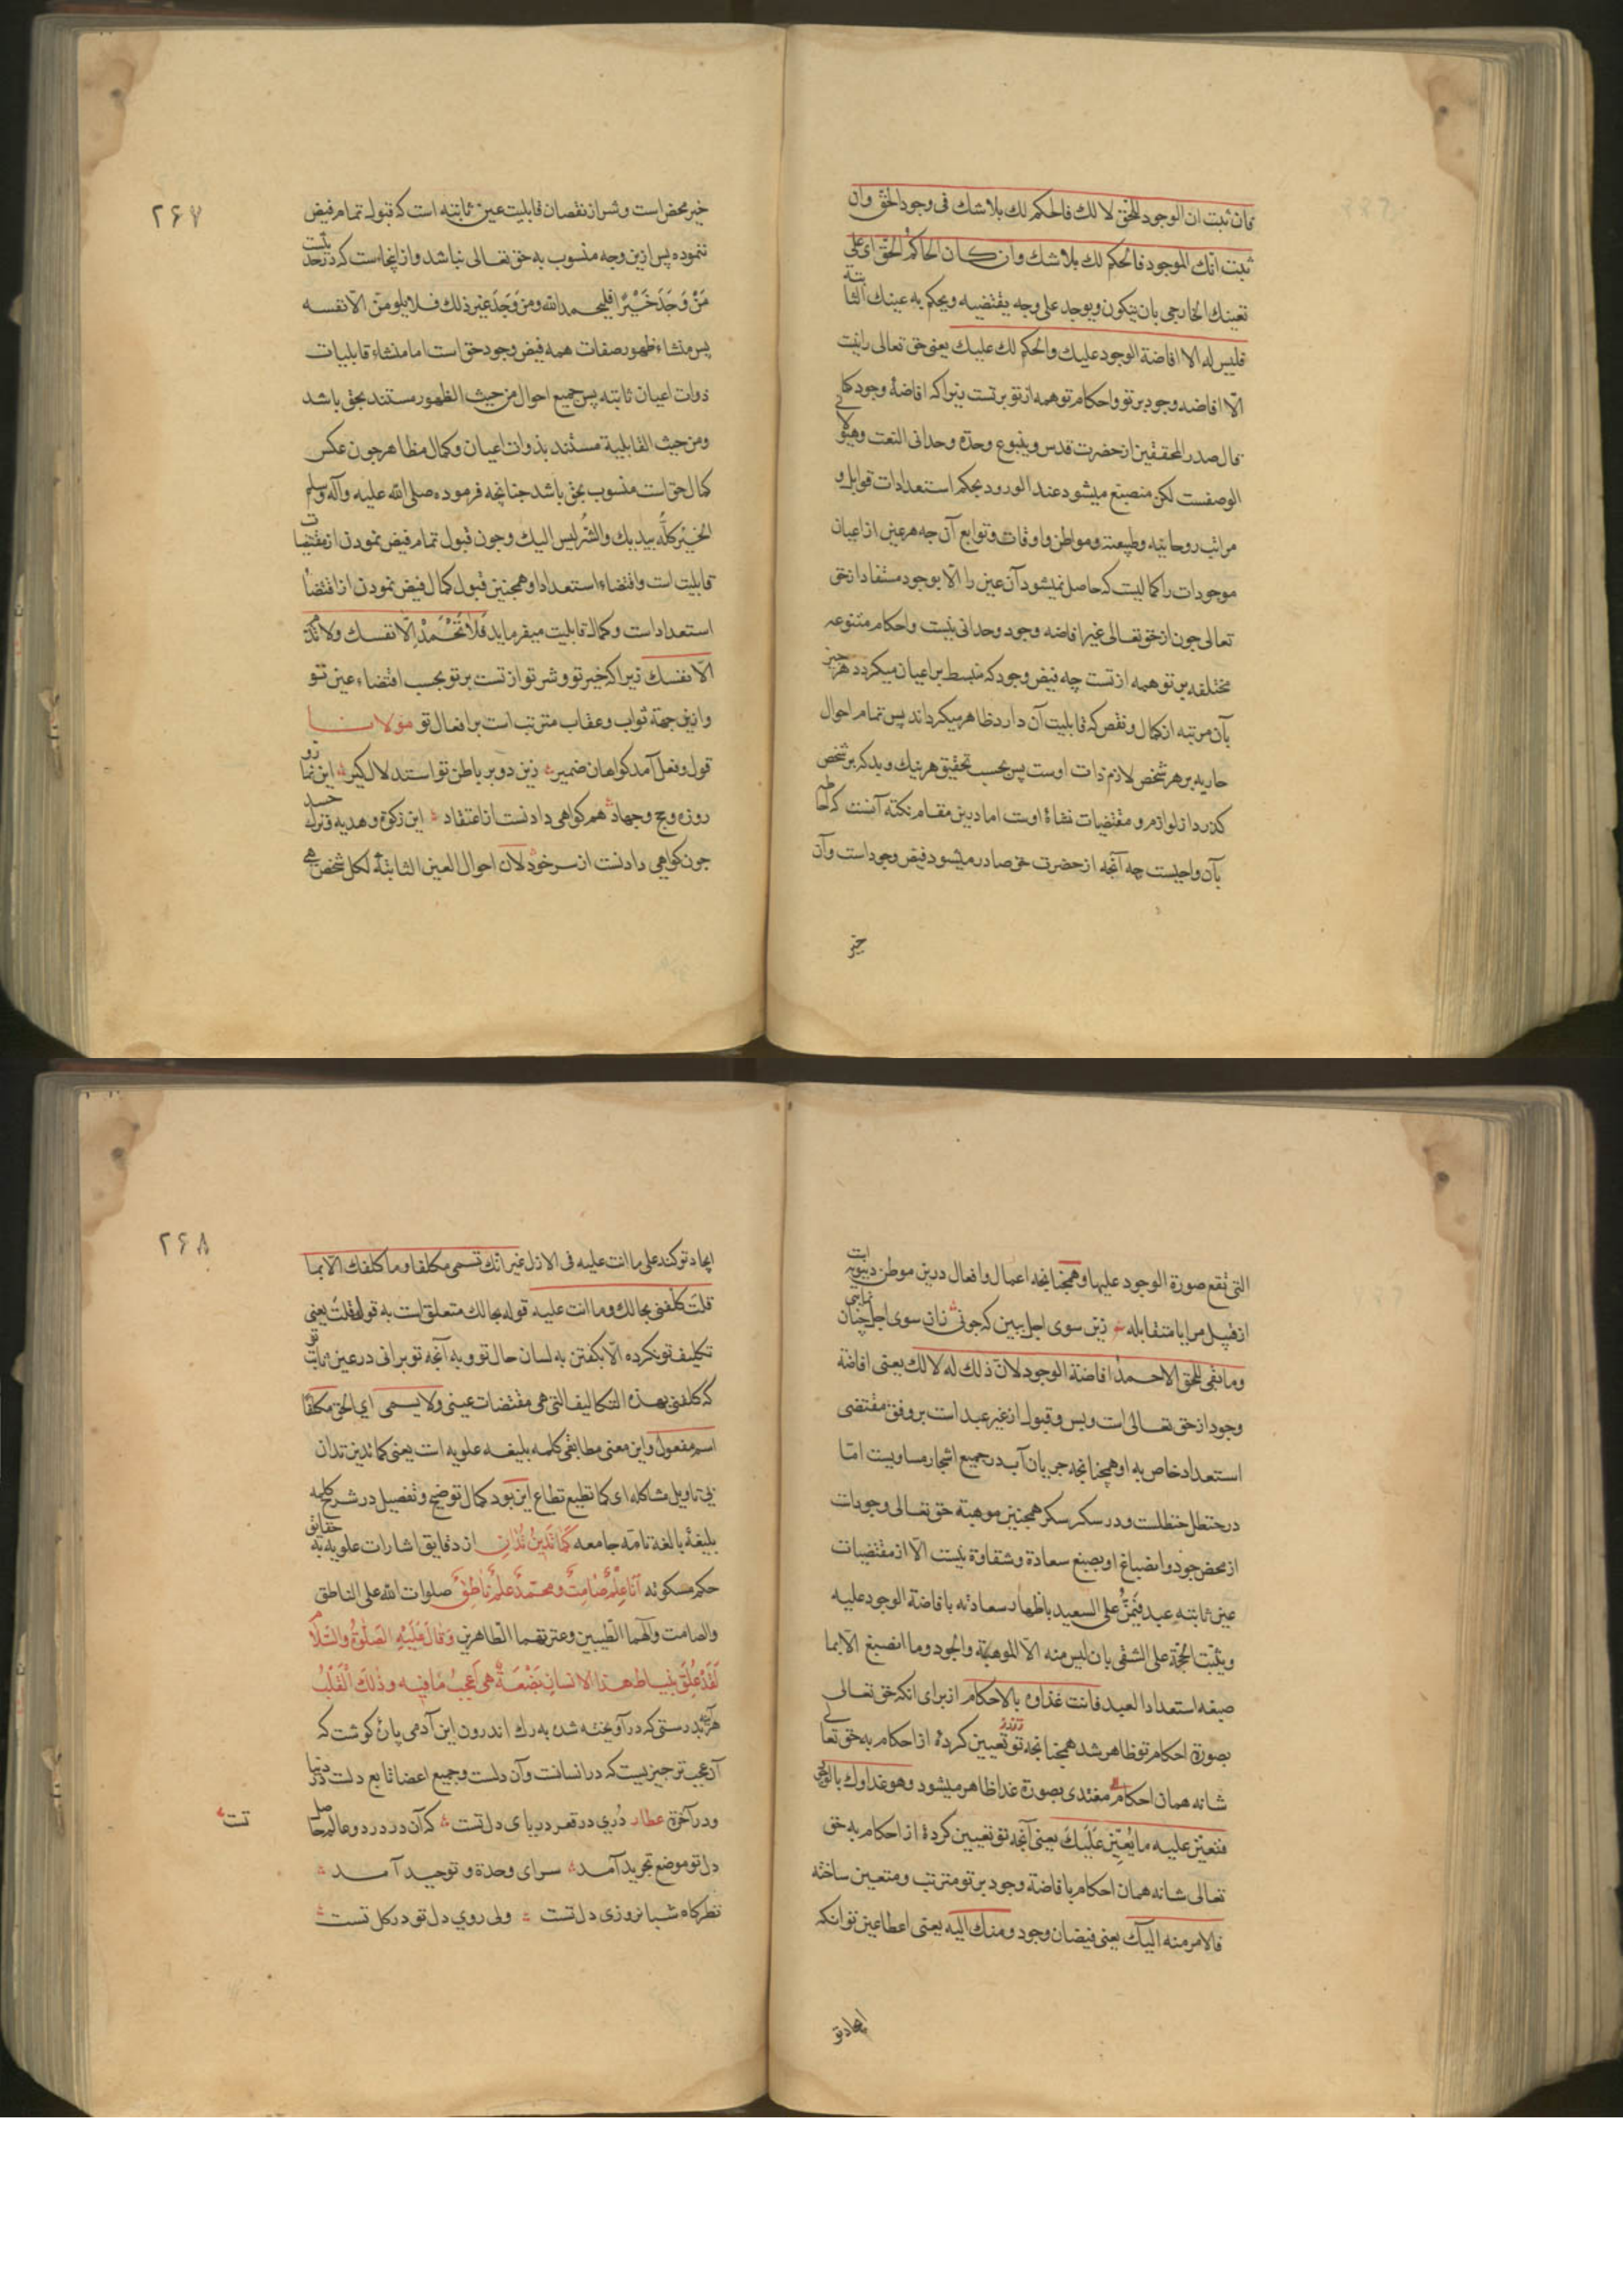 فان ثبت ان الوجود للحق لا لك فالحكم لك بلا شك فى وجود الحق وان
ثبت انك الموجود فالحكم لك بلا شك وان كان الحاكم الحق اى على
تعينك الخارجى بان يتكون ويوجد على وجه يقتضيه ويحكم به عينك الثابتة
فليس له الا افاضة الوجود عليك والحكم لك عليك يعنى حق تعالى را نيست
الّا افاضه وجود بر تو و احكام تو همه از تو بر تست زيرا كه افاضهٔ وجود كما
قال صدر المحققين از حضرت قدس و ينبوع وحدة وحدانى النعت وهيولانى
الوصفست لكن منصبغ ميشود عند الورود بحكم استعدادات قوابل و
مراتب روحانيه وطبيعته ومواطن واوقات وتوابع آن چه هر عين از اعيان
موجودات را كماليت كه حاصل نميشود آن عين را الّا بوجود مستفاد از حق
تعالى چون از حق تعالى غير افاضه وجود وحدانى نيست واحكام متنوعه
مختلفه بر تو همه از تست چه فيض وجود كه منبسط بر اعيان ميكردد هر چيز
بآن مرتبه از كمال و نقص كه قابليت آن دارد ظاهر ميكرداند پس تمام احوال
جاريه بر هر شخص لازم ذات اوست پس بحسب تحقيق هر نيك و بد كه بر شخص
كذرد از لوازم و مقتضيات نشاهٔ اوست اما درين مقام نكته آنست كه احاطه
بآن واجبست چه آنچه از حضرت حق صادر ميشود فيض وجود است وآن
خير
۲۶۷
خير محض است و شر از نقصان قابليت عين ثابته است كه قبول تمام فيض
ننموده پس ازين وجه منسوب به حق تعالى نباشد و از اينجاست كه در حديث
مَنْ وَجَدَ خَيْرًا فليحمد الله ومن وَجَدَ غير ذلك فلا يلومنّ الّا نفسه
پس منشاء ظهور صفات همه فيض وجود حق است اما منشاء قابليات
ذوات اعيان ثابته پس جميع احوال من حيث الظهور مستند بحق باشد
ومن حيث القابلية مستند بذوات اعيان وكمال مظاهر چون عكس
كمال حق است منسوب بحق باشد چنانچه فرموده صلى الله عليه وآله وسلم
الخير كلّه بيديك والشّر ليس اليك و چون قبول تمام فيض نمودن از مقتضيات
قابليت است و اقتضاء استعداد او همچنين قبول كمال فيض نمودن از اقتضاء
استعداد است وكمال قابليت ميفرمايد فَلَا تَحْمَدْ اِلّا نفسك ولا تذم
الّا نفسك زيرا كه خير تو و شر تو از تست بر تو بحسب اقتضاء عين تو
و ازين جهة ثواب و عقاب مترتب است بر افعال تو مولانا
قول و فعل آمد كواهان ضمير زين دو بر باطن تو استدلال كير اين نماز و
روزه و حج و جهاد هم كواهى دادنست از اعتقاد اين زكوة و هديه و ترك حسد
چون كواهى دادنست از سر خود لان احوال العين الثابتة لكل شخص هى
التى تقع صورة الوجود عليها وهمچنانچه اعمال وافعال درين موطن
از قبيل مرايا متقابله زين سوى اجل ببين كه چونى زان سوى اجل چنان
وما بقى للحق الا حمد افاضة الوجود لانّ ذلك له لا لك يعنى افاضه
وجود از حق تعالى است و بس و قبول از غير عبد است بر وفق مقتضى
استعداد خاص به او همچنانچه جريان آب در جميع اشجار مساويست امّا
در حنظل حنظلست و در سكر سكر همچنين موهبة حق تعالى وجودات
از محض جود و انصباغ او بصبغ سعادة و شقاوة نيست الّا از مقتضيات
عين ثابته عبد فَيَمُنُّ على السعيد باظهار سعادته بافاضة الوجود عليه
ويثبت الحجة على الشقى بان ليس منه الّا الموهبة والجود وما انصبغ الّا بما
صبغه استعداد العبد فانت غذاؤه بالاحكام از براى انكه حق تعالى
بصورة احكام تو ظاهر شد همچنانچه تو تعيين كردهٔ از احكام به حق تعالى
شانه همان احكام مغتدى بصورة غذا ظاهر ميشود وهو غذاوك بالوجود
فتعيّن عليه ما يُعيِّن عَلَيكَ يعنى آنچه تو تعيين كردهٔ از احكام به حق
تعالى شانه همان احكام بافاضة وجود بر تو مترتب و متعين ساخته
فالامر منه اليك يعنى فيضان وجود ومنك اليه يعنى اعطا عين تو انكه
ايجاد تو
۲۶۸
ايجاد تو كند على ما انت عليه فى الازل غير انّك تسمى مكلفا وما كلفك الّا بما
قلت كلفنى بحالك وما انت عليه قوله بحالك متعلق است به قوله قلتَ يعنى
تكليف تو نكرده الّا بكفتن به لسان حال تو و به آنچه تو بر آنى در عين ثابت تو
كه كلفنى بهذه التكاليف التى هى مقتضيات عينى ولا يسمى اى الحق مكلفًا
اسم مفعول و اين معنى مطابقى كلمه بليغه علويه است يعنى كما تدين تدان
بى تاويل مشاكله اى كما تطيع تطاع اين بود كمال توضيح و تفصيل در شرح كلمه
بليغهٔ بالغه تامّه جامعه كَمَا تَدِينُ تُدَان از دقايق اشارات علويه به حقايق
حكم مسكوته اَنَا عِلْمٌ صَامِتٌ وَمحمّدٌ عِلْمٌ نَاطِقٌ صلوات الله على الناطق
والصامت وآلهما الطيبين وعترتهما الطاهرين وَقَالَ عَلَيْهِ الصَلوةُ والسَّلام
لَقَدْ عُلِّقَ بنياط هذا الانسان بَضْعَةٌ هى اَعجَبُ مَا فيه وَذلِكَ القَلْبُ
هر آينه بدرستى كه در آويخته شده به رك اندرون اين آدمى پارهٔ كوشت كه
آن عجب تر چيزيست كه در انسانست وآن دلست و جميع اعضا تابع دلست در دنيا
و در آخرة عطار دُرى در قعر درياى دل تست كه آن در درد و عالم حاصل تست
دل تو موضع تجريد آمد سراى وحدة و توحيد آمد
نظركاه شبانروزى دل تست ولى روى دل تو در كل تست